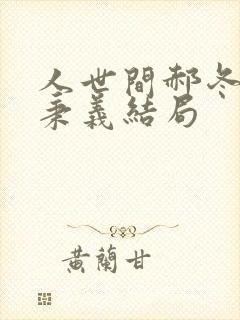 人世間郝冬
秉義結局
黃蘭甘